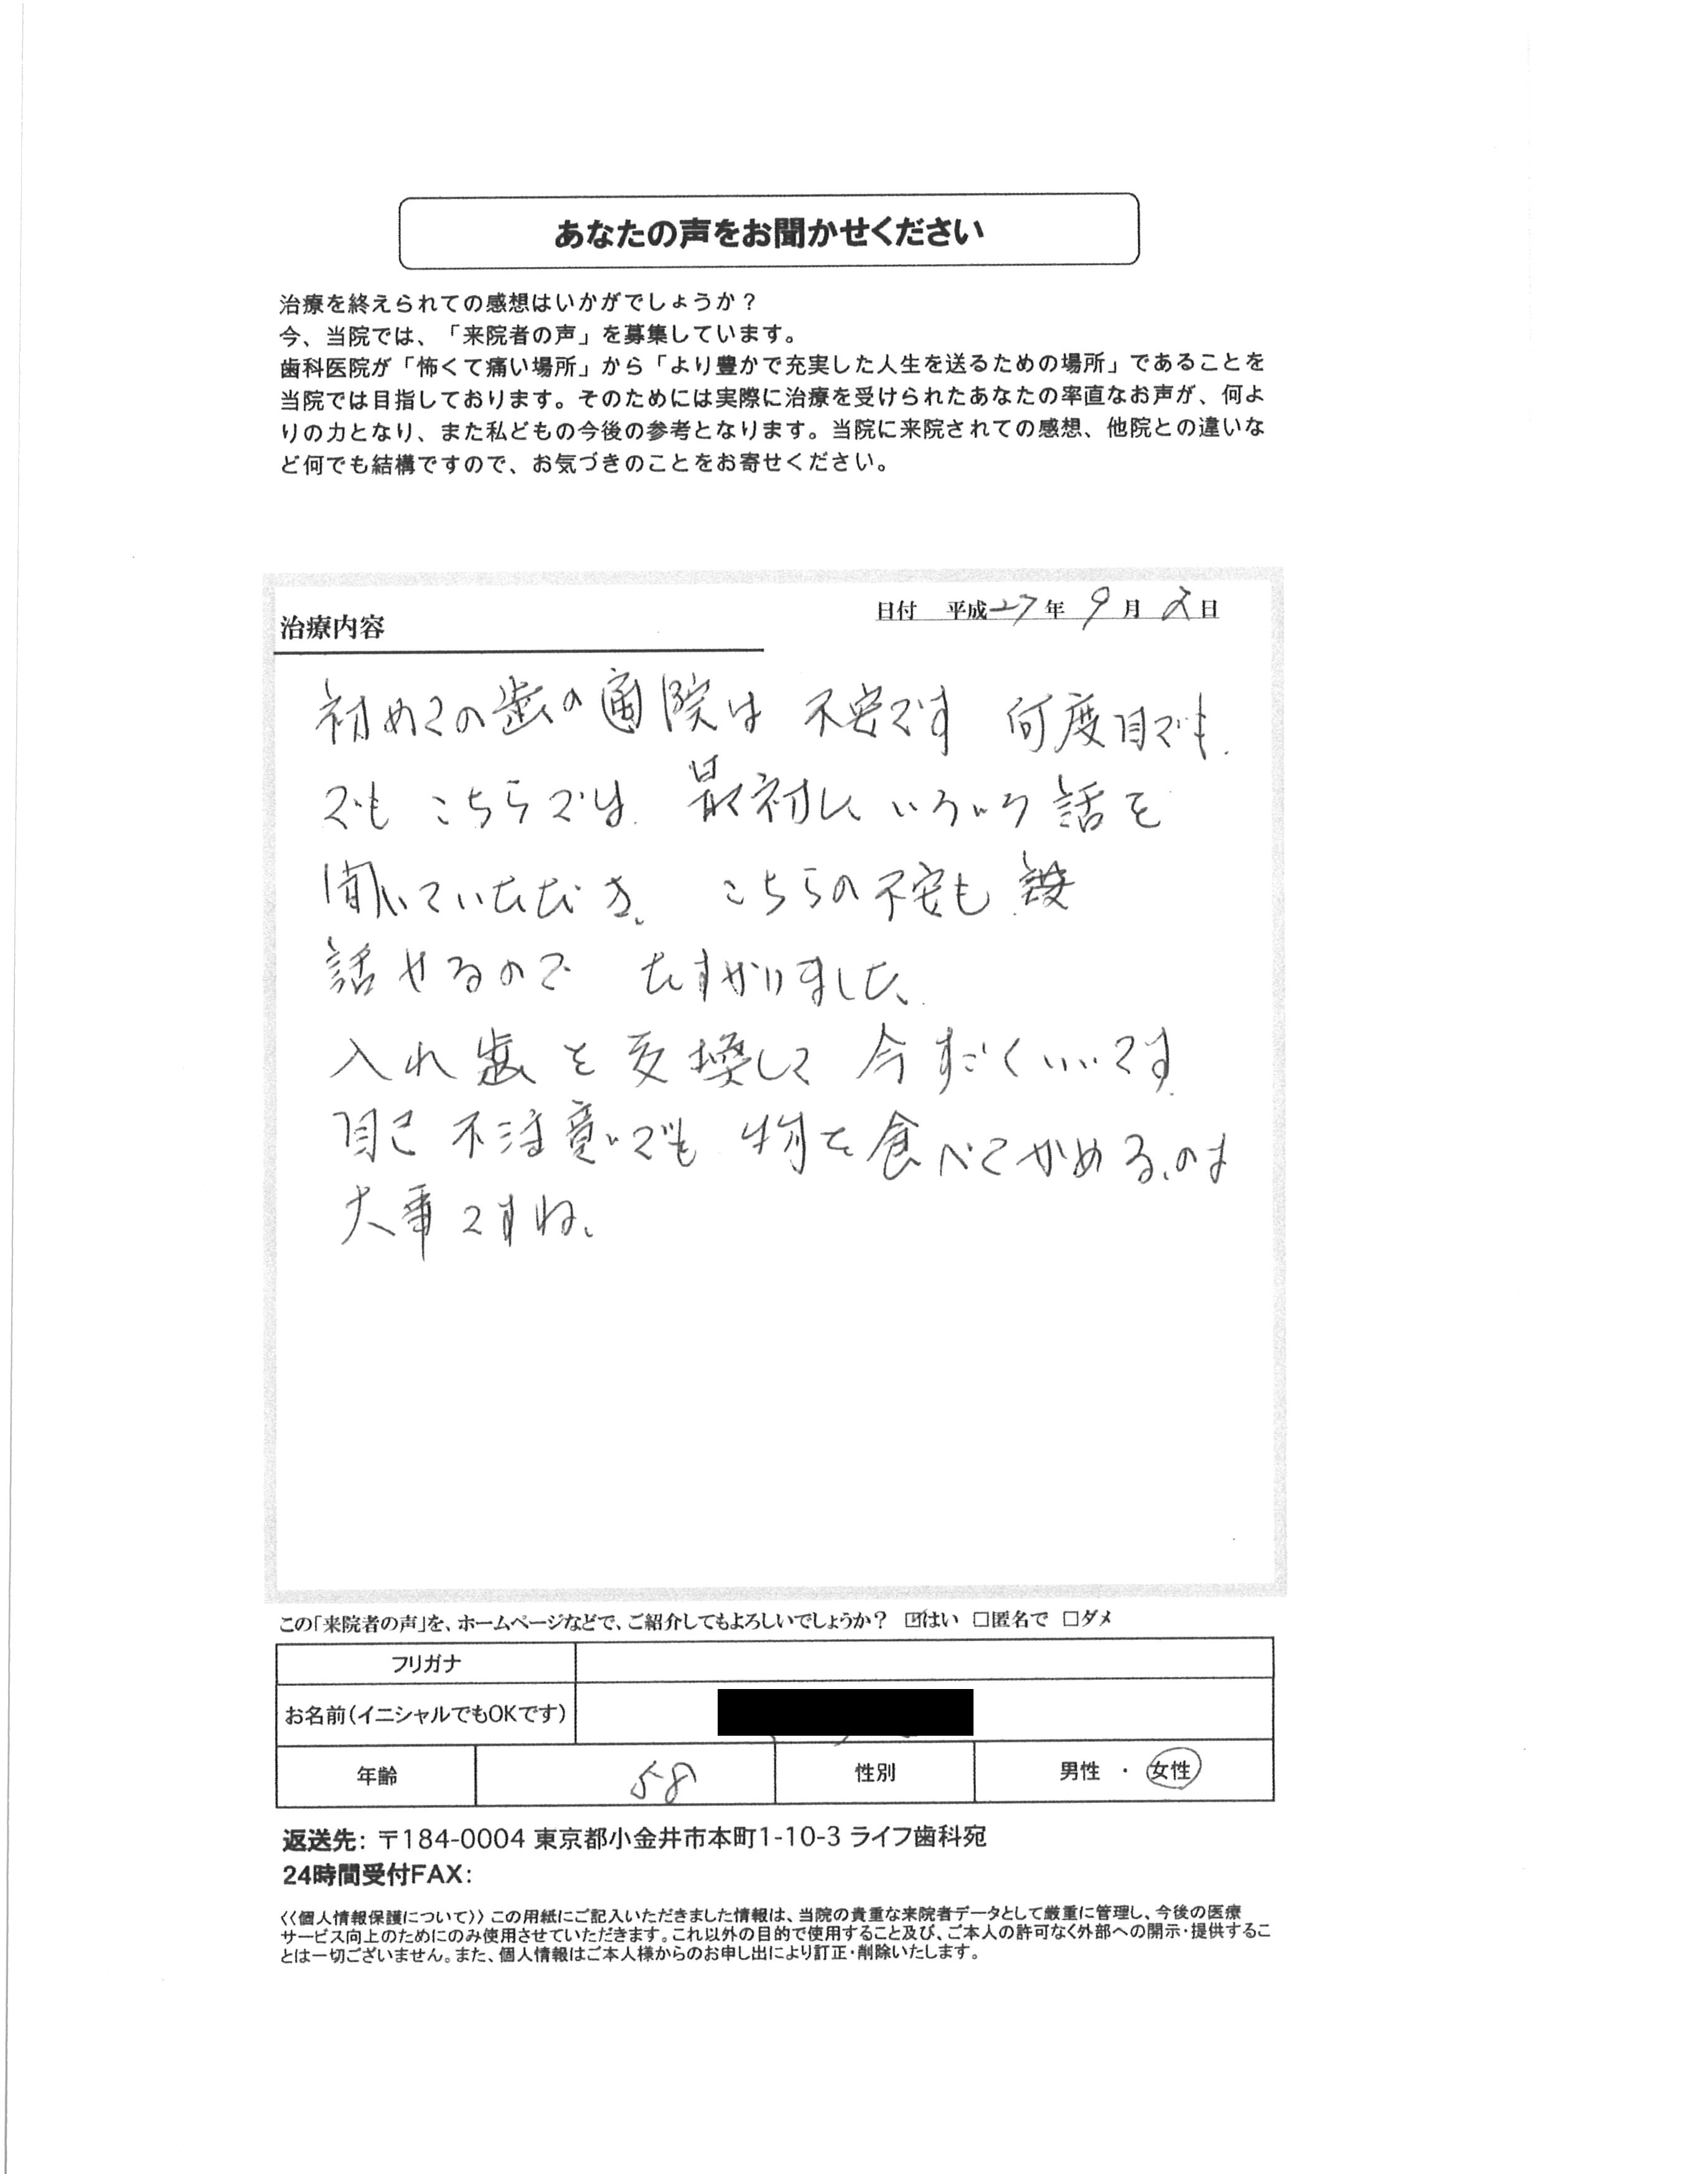 あなたの声をお聞かせください
治療を終えられての感想はいかがでしょうか？
今、当院では、「来院者の声」を募集しています。
歯科医院が「怖くて痛い場所」から「より豊かで充実した人生を送るための場所」であることを
当院では目指しております。そのためには実際に治療を受けられたあなたの率直なお声が、何よ
りの力となり、また私どもの今後の参考となります。当院に来院されての感想、他院との違いな
ど何でも結構ですので、お気づきのことをお寄せください。
日付 平成27年 9月 2日
治療内容
初めての歯の通院は 不安です 何度目でも.
でも こちらでは 最初に いろいろ 話を
聞いていただき、 こちらの不安も
話せるので たすかりました、
入れ歯を交換して 今すごくいいです
自己不注意でも 物を食べてかめる、のは
大事ですね、
この「来院者の声」を、ホームページなどで、ご紹介してもよろしいでしょうか？ ☑はい □匿名で □ダメ
フリガナ
お名前（イニシャルでもOKです）
年齢 58 性別 男性 ・ 女性
返送先： 〒184-0004 東京都小金井市本町1-10-3 ライフ歯科宛
24時間受付FAX：
〈〈個人情報保護について〉〉 この用紙にご記入いただきました情報は、当院の貴重な来院者データとして厳重に管理し、今後の医療
サービス向上のためにのみ使用させていただきます。これ以外の目的で使用すること及び、ご本人の許可なく外部への開示・提供するこ
とは一切ございません。また、個人情報はご本人様からのお申し出により訂正・削除いたします。